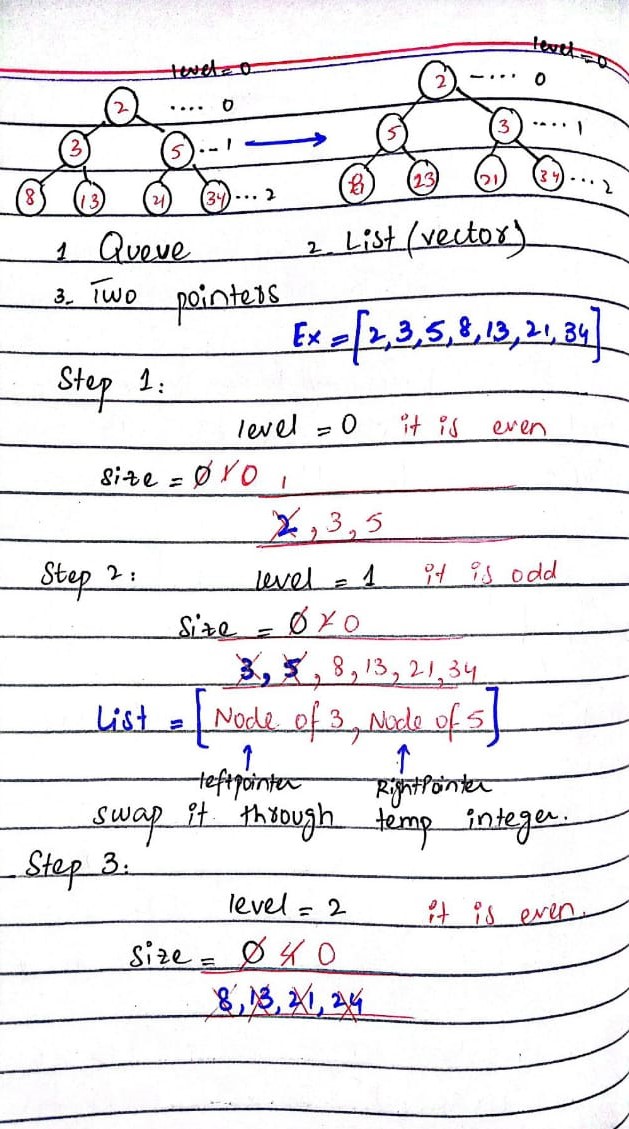 level = 0 level = 0
2 .... 0 2 -.... 0
3 5 ..-1 5 3 ....1
8 13 21 34 ... 2 23 21 34 ... 2
1 Queue 2- List (vector)
3- Two pointers
Ex = [2,3,5,8,13,21,34]
Step 1:
level = 0 it is even
size = 0 1 0
2, 3, 5
Step 2: level = 1 it is odd
size = 0 2 0
3, 5, 8, 13, 21, 34
List = [Node of 3, Node of 5]
↑ ↑
leftpointer RightPointer
swap it through temp integer.
Step 3:
level = 2 it is even.
size = 0 4 0
8, 13, 21, 24